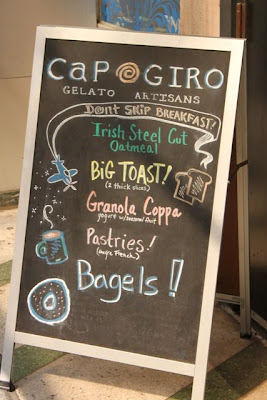 CAPOGIRO
GELATO ARTISANS
DON'T SKIP BREAKFAST!
Irish Steel Cut
Oatmeal
BiG TOAST!
(2 thick slices)
Granola Coppa
yogurt w/seasonal fruit
Pastries!
Bagels!